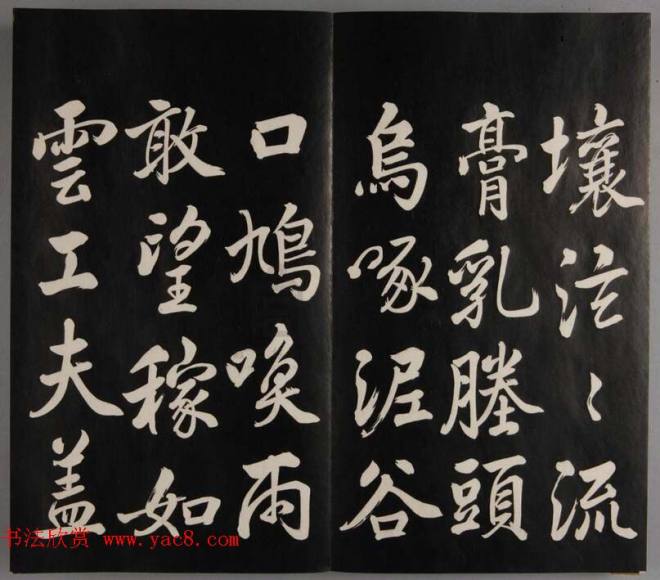 壤泫〻流
膏乳塍頭
烏啄泥谷
口鳩喚雨
敢望稼如
雲工夫盖
书法欣赏 www.yac8.com